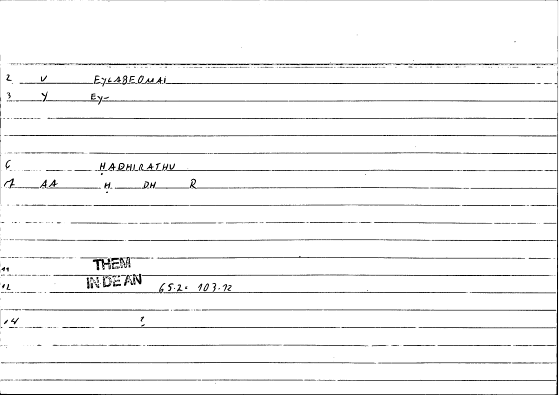 2 V EYLABEOMAI
3 Y EY-
6 ḤADHIRATHU
7 AA Ḥ DH R
11 THEM
12 IN DE AN 65.2= 103.12
14 ?